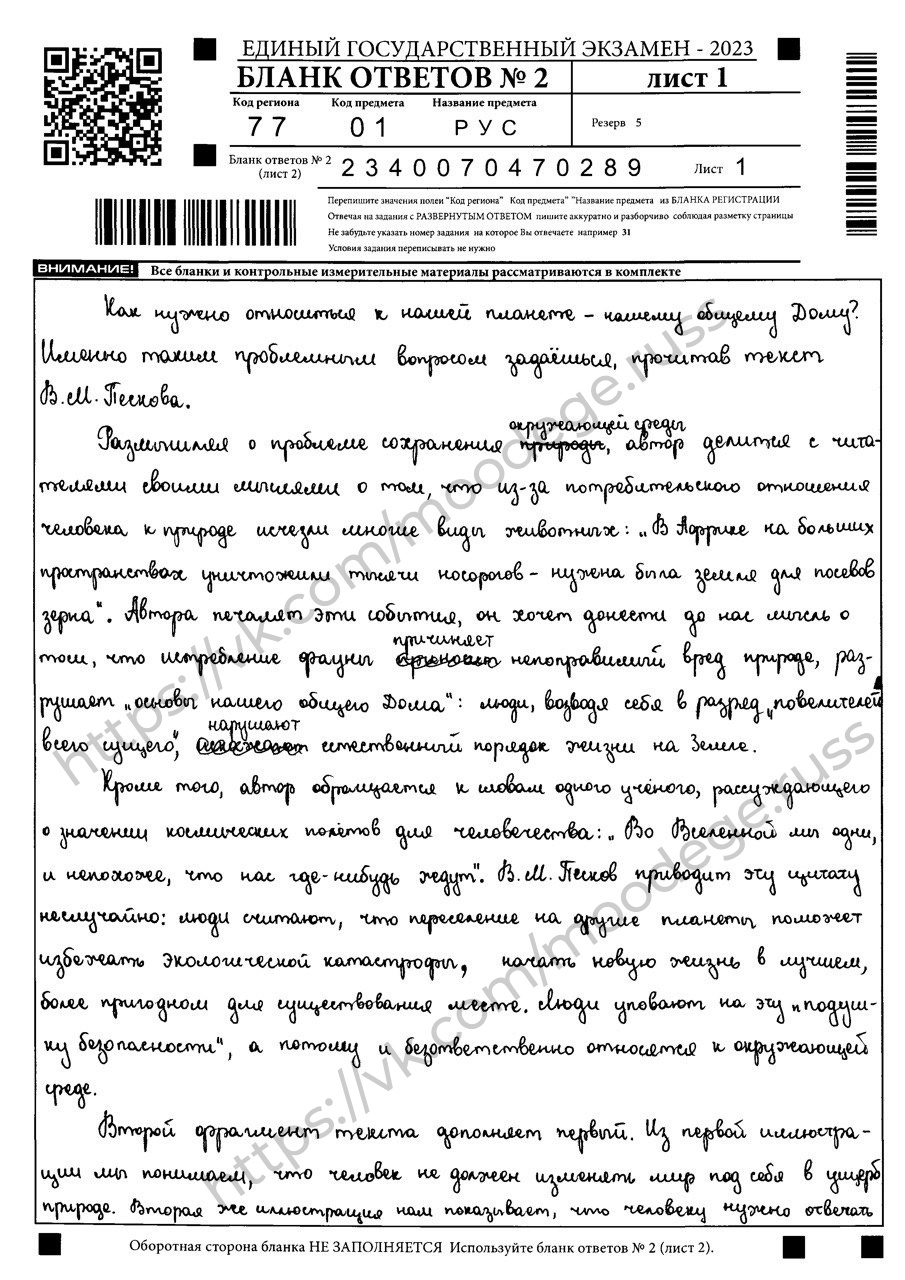 ЕДИНЫЙ ГОСУДАРСТВЕННЫЙ ЭКЗАМЕН - 2023
БЛАНК ОТВЕТОВ № 2 лист 1
Код региона Код предмета Название предмета
77 01 РУС Резерв 5
Бланк ответов № 2 (лист 2) 2340070470289 Лист 1
Перепишите значения полеи "Код региона" Код предмета" "Название предмета из БЛАНКА РЕГИСТРАЦИИ
Отвечая на задания с РАЗВЕРНУТЫМ ОТВЕТОМ пишите аккуратно и разборчиво соблюдая разметку страницы
Не забудьте указать номер задания на которое Вы отвечаете например 31
Условия задания переписывать не нужно
ВНИМАНИЕ! Все бланки и контрольные измерительные материалы рассматриваются в комплекте
Как нужно относиться к нашей планете – нашему общему Дому?
Именно таким проблемным вопросом задаёшься, прочитав текст
В.М. Пескова.
окружающей среды
Размышляя о проблеме сохранения природы, автор делится с чита-
телями своими мыслями о том, что из-за потребительского отношения
человека к природе исчезли многие виды животных: „В Африке на больших
пространствах уничтожили тысячи носорогов – нужна была земля для посевов
зерна". Автора печалят эти события, он хочет донести до нас мысль о
причиняет
том, что истребление фауны приносит непоправимый вред природе, раз-
рушает „основы нашего общего Дома": люди, возводя себя в разряд „повелителей
нарушают
всего сущего", естественный порядок жизни на Земле.
Кроме того, автор обращается к словам одного учёного, рассуждающего
о значении космических полётов для человечества: „Во Вселенной мы одни,
и непохоже, что нас где-нибудь ждут". В.М. Песков приводит эту цитату
неслучайно: люди считают, что переселение на другие планеты поможет
избежать экологической катастрофы, начать новую жизнь в лучшем,
более пригодном для существования месте. Люди уповают на эту „подуш-
ку безопасности", а потому и безответственно относятся к окружающей
среде.
Второй фрагмент текста дополняет первый. Из первой иллюстра-
ции мы понимаем, что человек не должен изменять мир под себя в ущерб
природе. Вторая же иллюстрация нам показывает, что человеку нужно отвечать
Оборотная сторона бланка НЕ ЗАПОЛНЯЕТСЯ Используйте бланк ответов № 2 (лист 2).
https://vk.com/moodege.russ
https://vk.com/moodege.russ